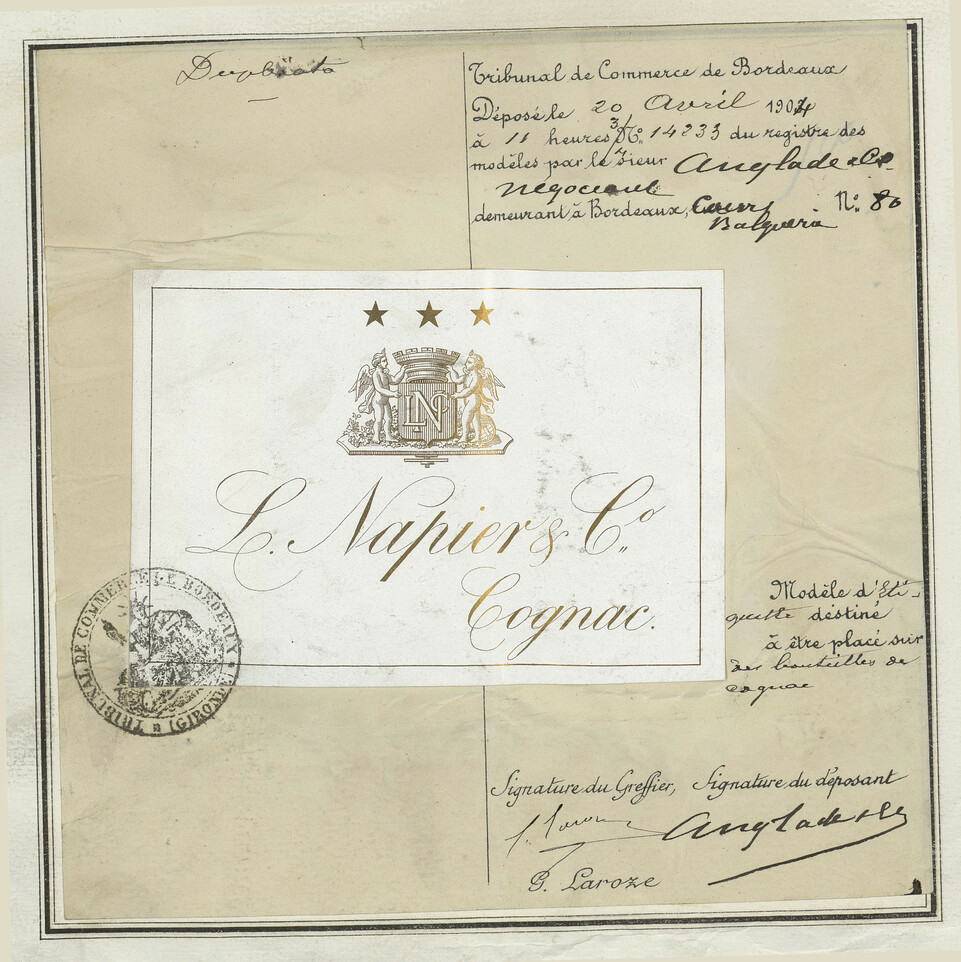 Duplicata
Tribunal de Commerce de Bordeaux
Déposé le 20 Avril 1904
à 11 heures 3/4 No. 14233 du registre des
modèles par le sieur Anglade & Co.
négociant
demeurant à Bordeaux, Cours No. 80
Balguerie
★ ★ ★
LNCo
L. Napier & Co.
Cognac.
TRIBUNAL DE COMMERCE DE BORDEAUX
(GIRONDE)
Modèle d'éti-
quette destiné
à être placé sur
des bouteilles de
cognac
Signature du Greffier, Signature du déposant
Anglade & Co
G. Laroze